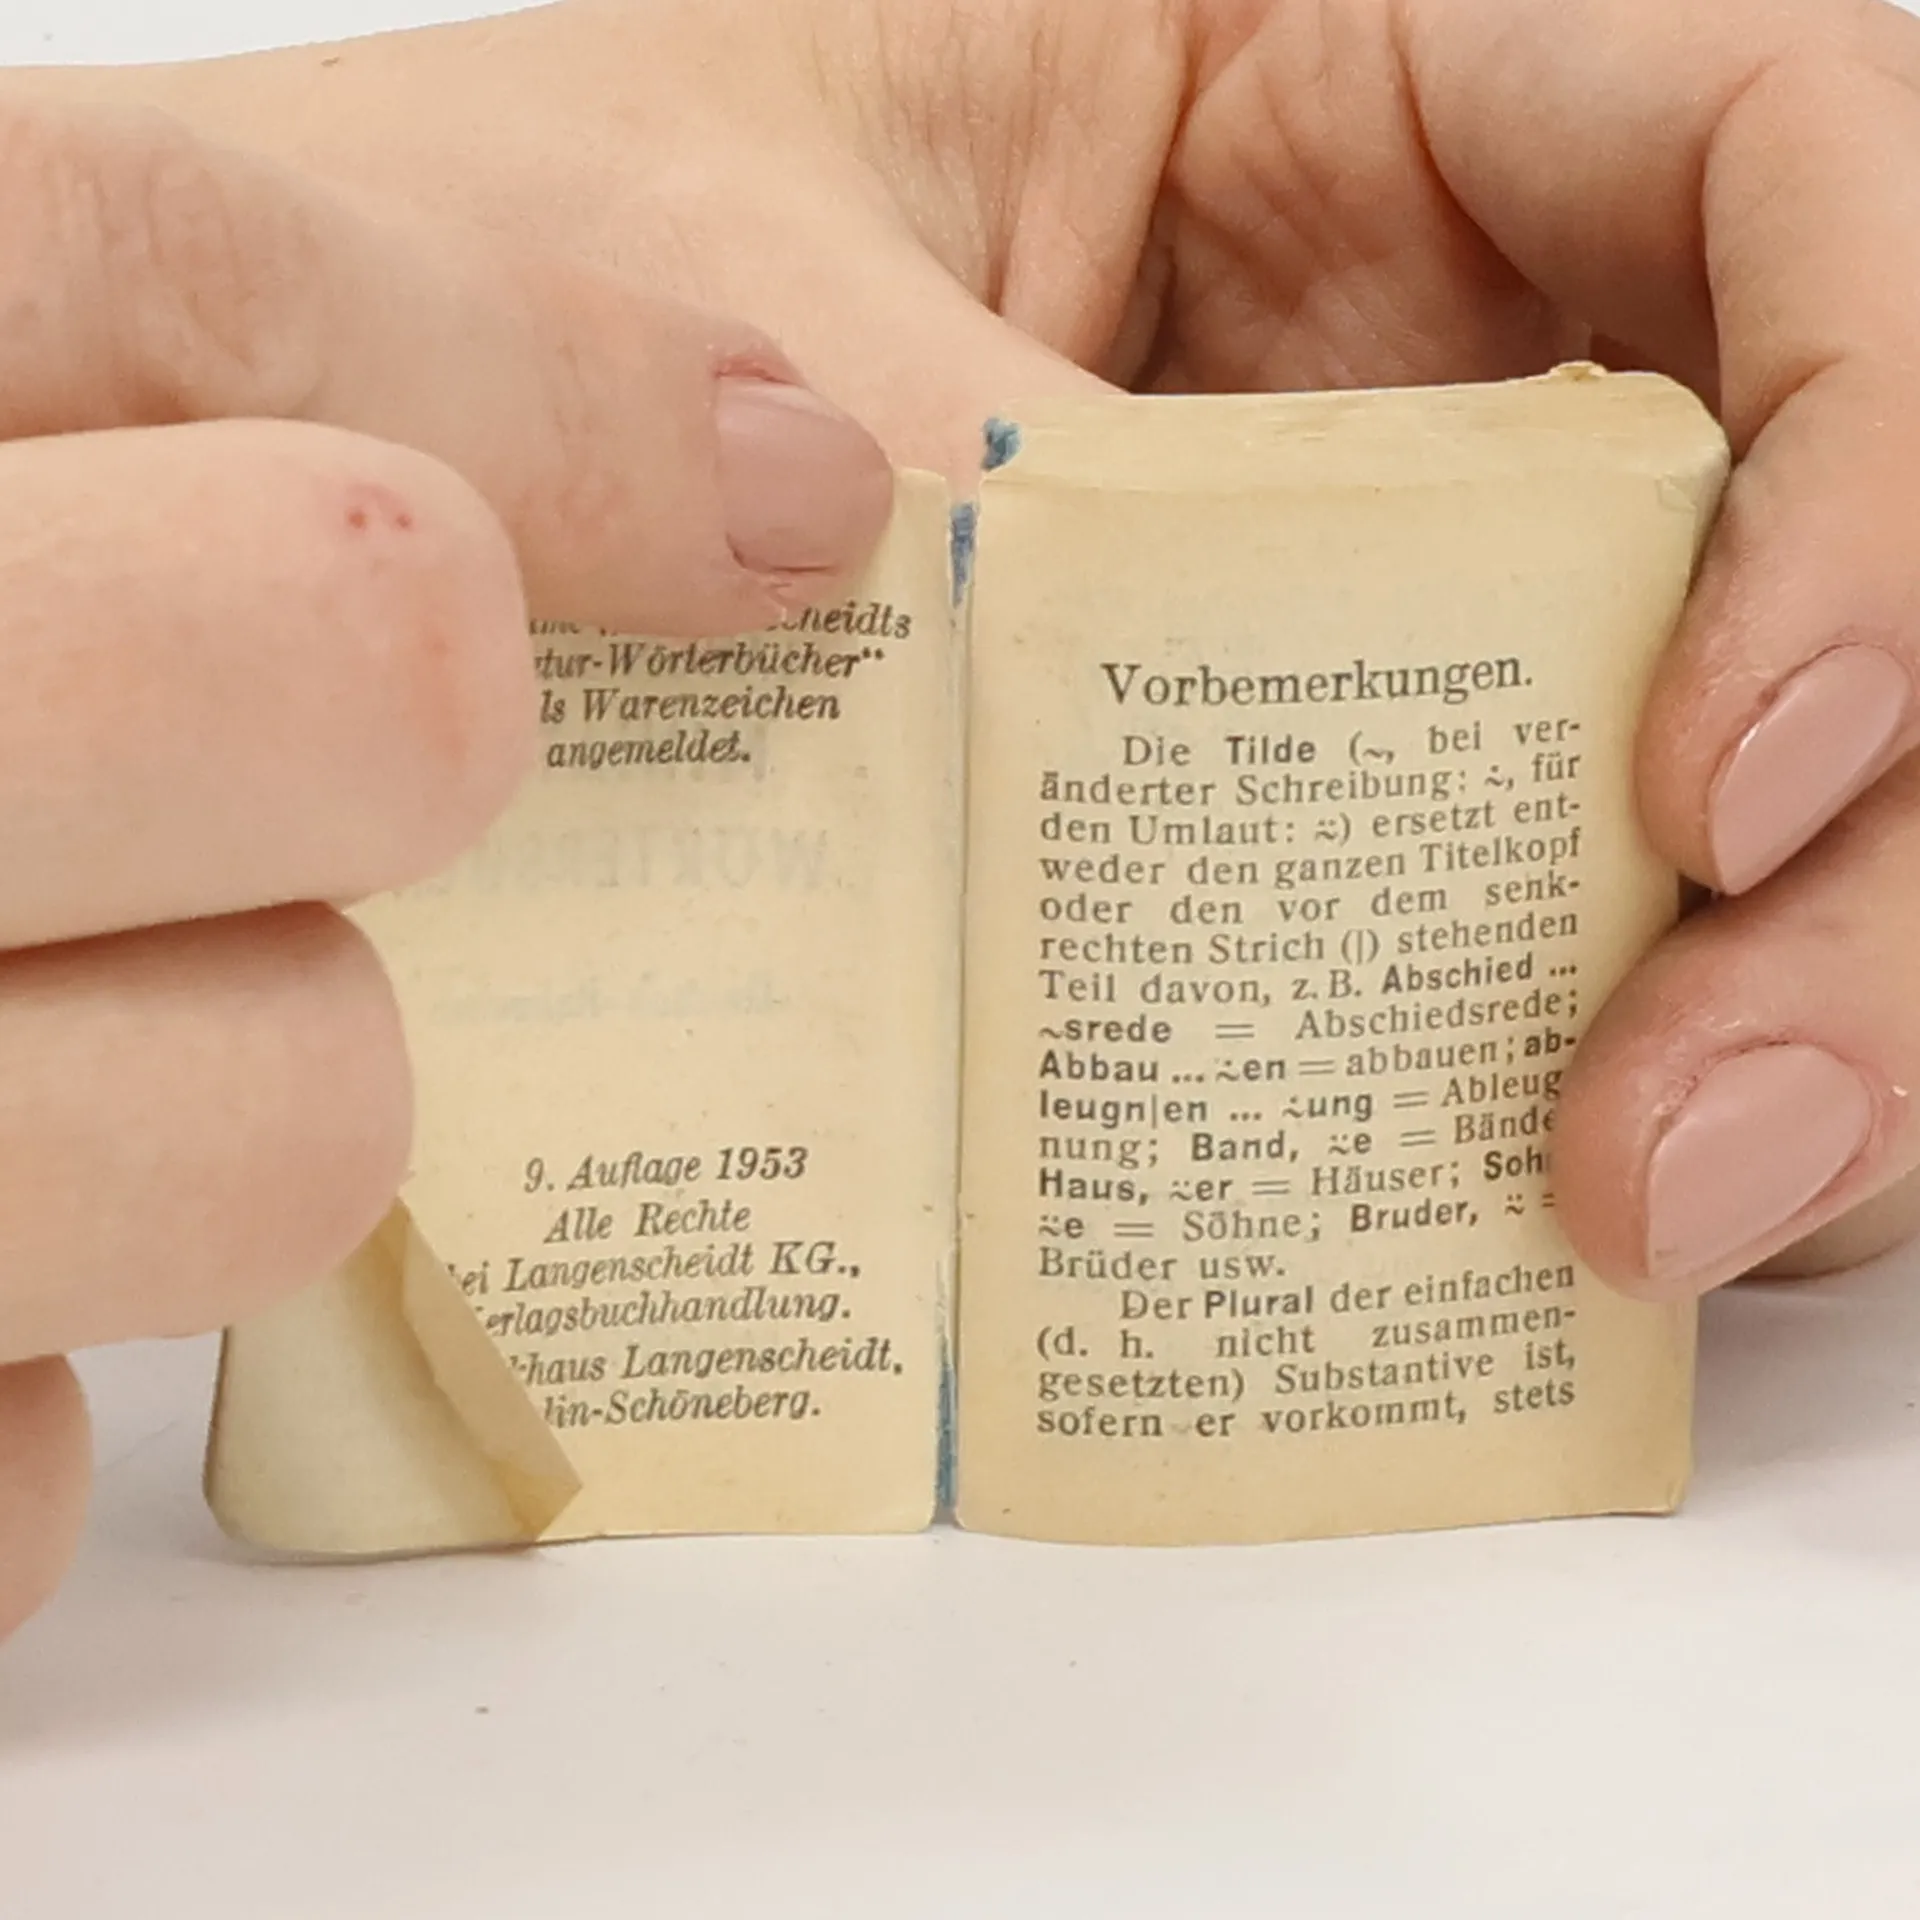 Wörterbücher“
Warenzeichen
angemeldet.
9. Auflage 1953
Alle Rechte
Langenscheidt KG.,
Langenscheidt,
Schöneberg.
Vorbemerkungen.
Die Tilde (~, bei ver-
änderter Schreibung: ⩪, für
den Umlaut: ~̈) ersetzt ent-
weder den ganzen Titelkopf
oder den vor dem senk-
rechten Strich (|) stehenden
Teil davon, z. B. Abschied ...
~srede = Abschiedsrede;
Abbau ... ⩪en = abbauen; ab-
leugn|en ... ⩪ung = Ableug
nung; Band, ~̈e =
Haus, ~̈er = Häuser;
~̈e = Söhne; Bruder, ~̈ =
Brüder usw.
Der Plural der einfachen
(d. h. nicht zusammen-
gesetzten) Substantive ist,
sofern er vorkommt, stets